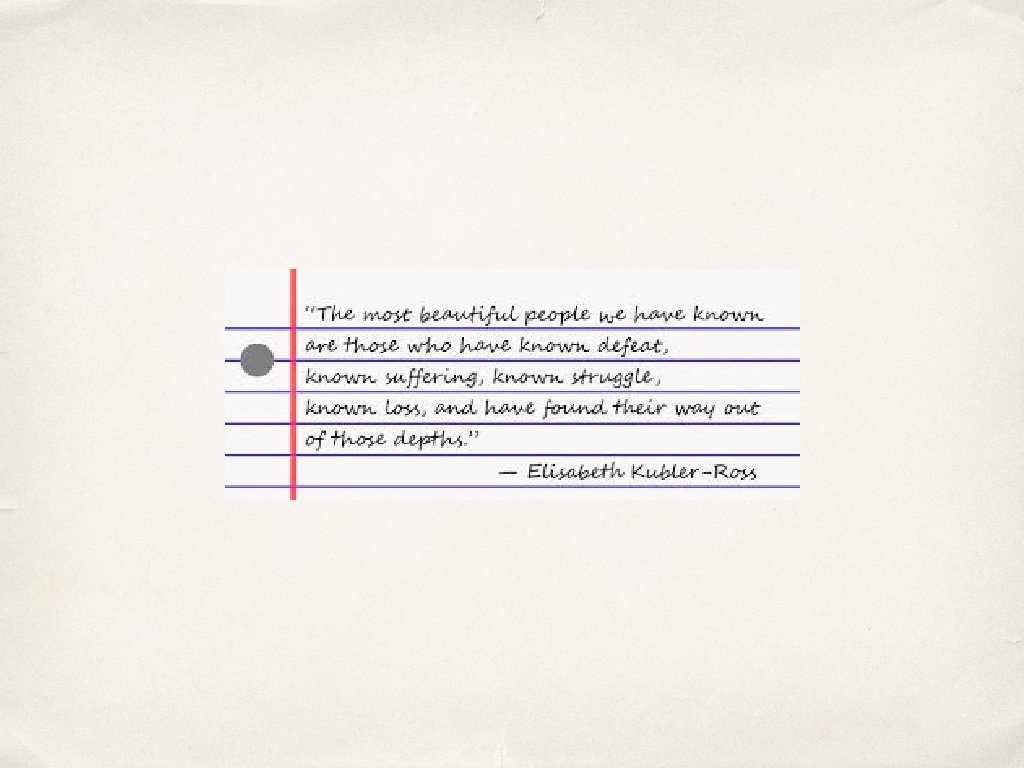 “The most beautiful people we have known
are those who have known defeat,
known suffering, known struggle,
known loss, and have found their way out
of those depths.”
— Elisabeth Kubler-Ross